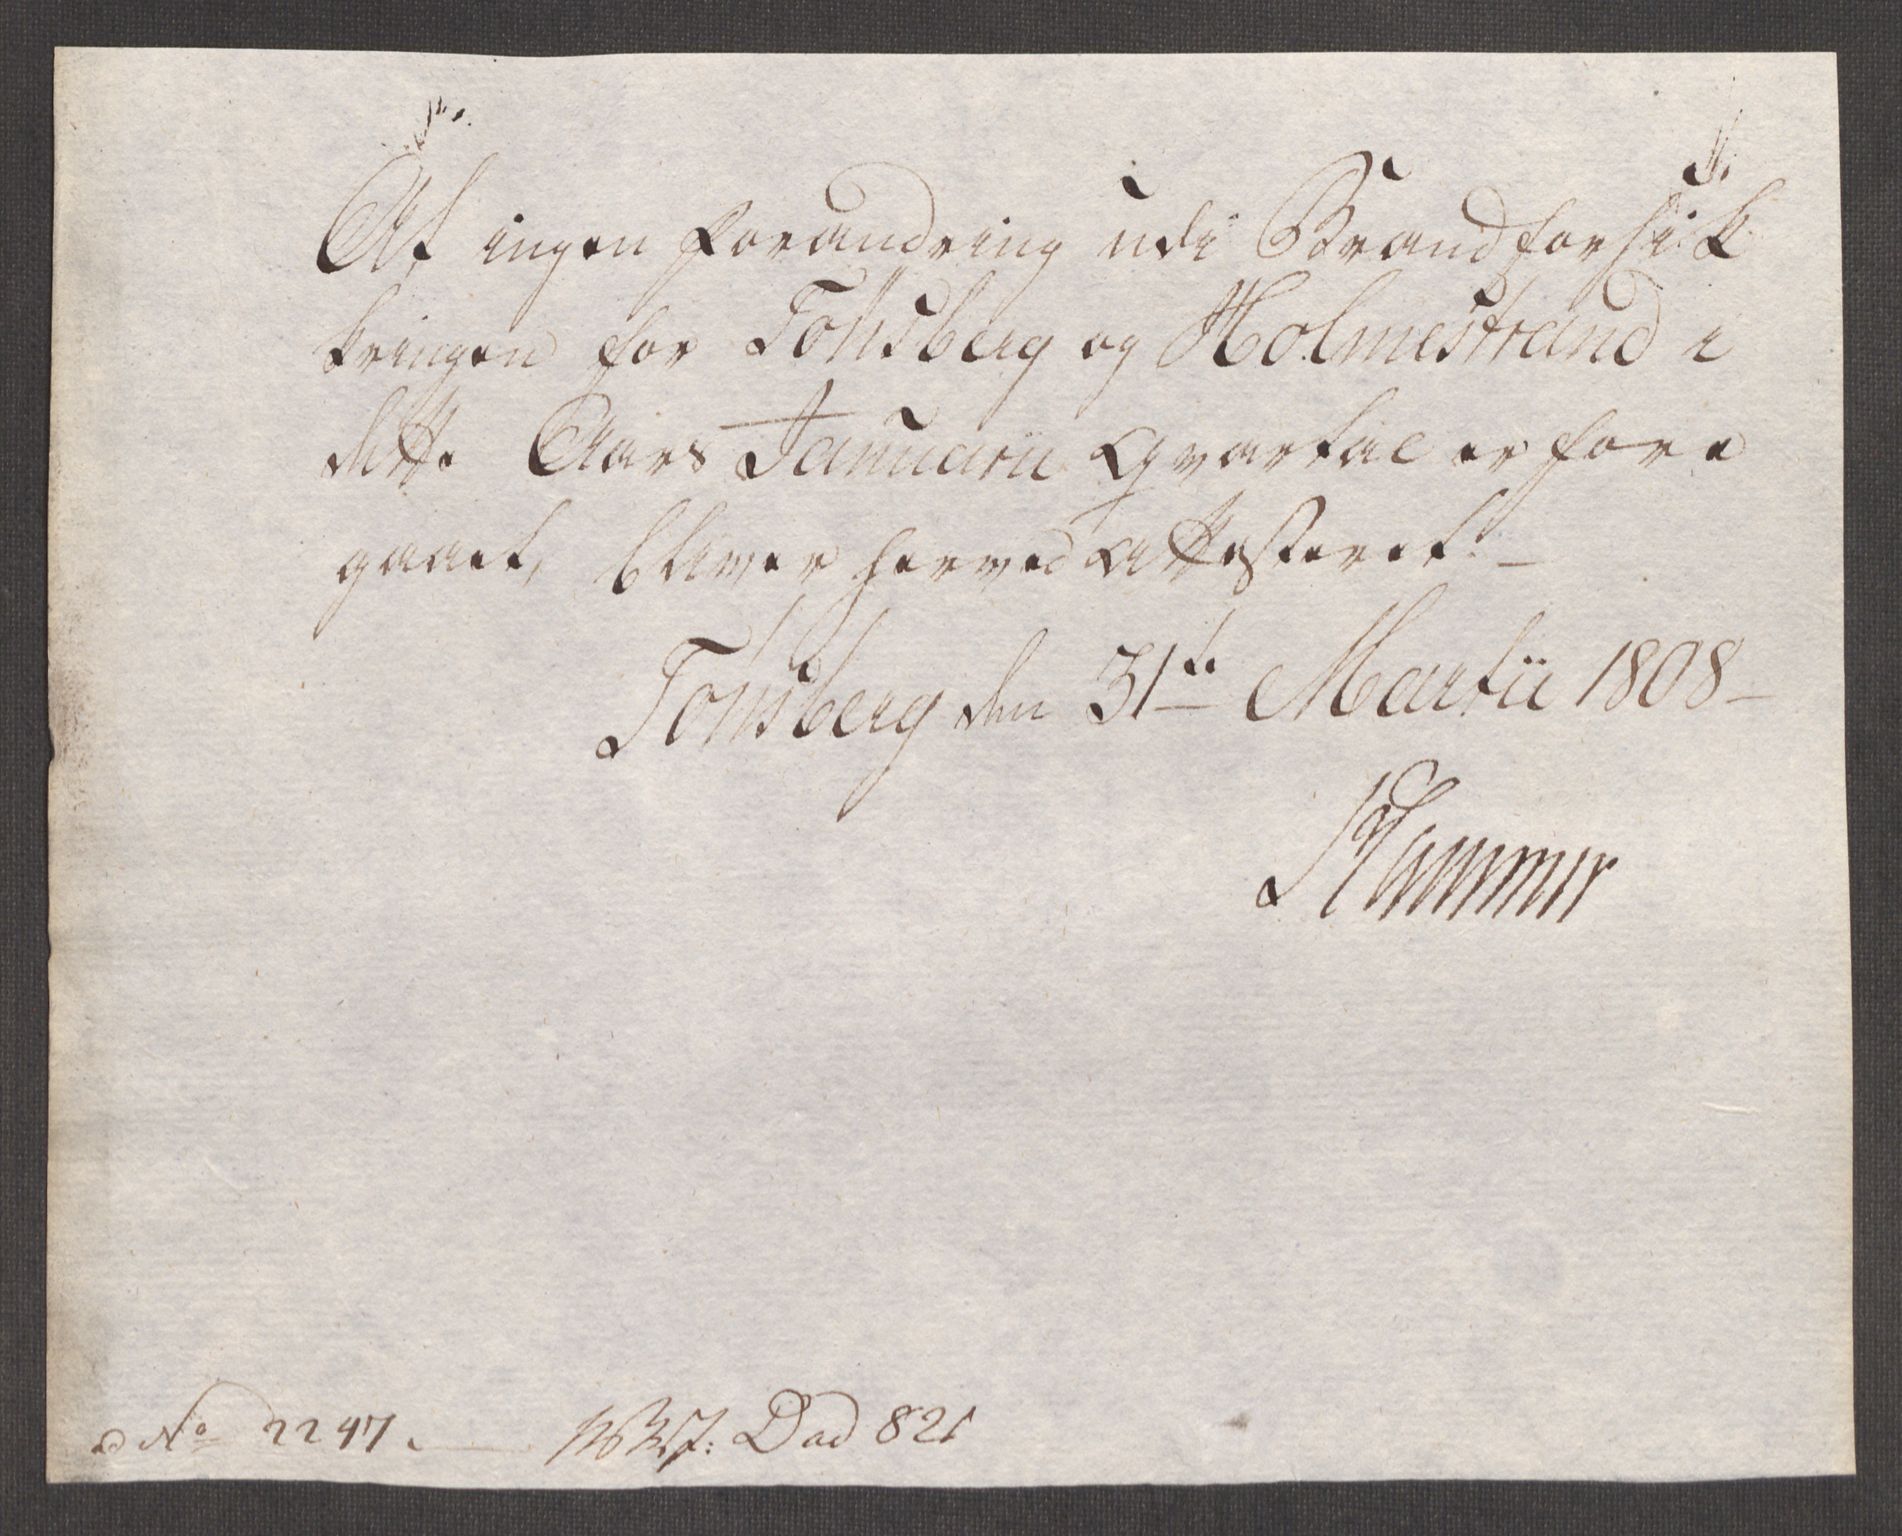 At ingen forandring udi Brandforsik
kringen for Tönsberg og Holmestrand i
dette Aars Januarii Qvartal er fore
gaaet, bliver herved Attesteret. —
Tönsberg den 31te Martii 1808 —
Hammer
No 2247.
Dad 821